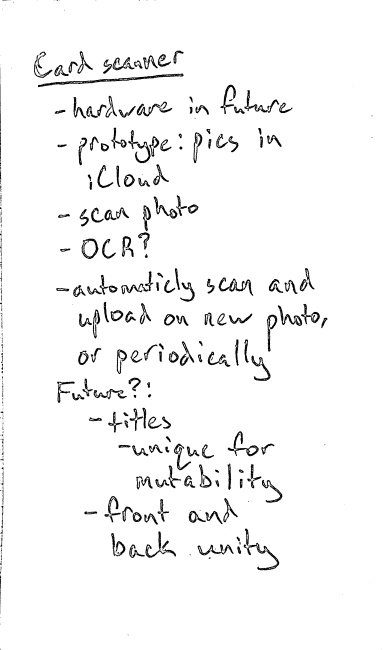 Card scanner
- hardware in future
- prototype: pics in
iCloud
- scan photo
- OCR?
- automaticly scan and
upload on new photo,
or periodically
Future?:
- titles
- unique for
mutability
- front and
back unity